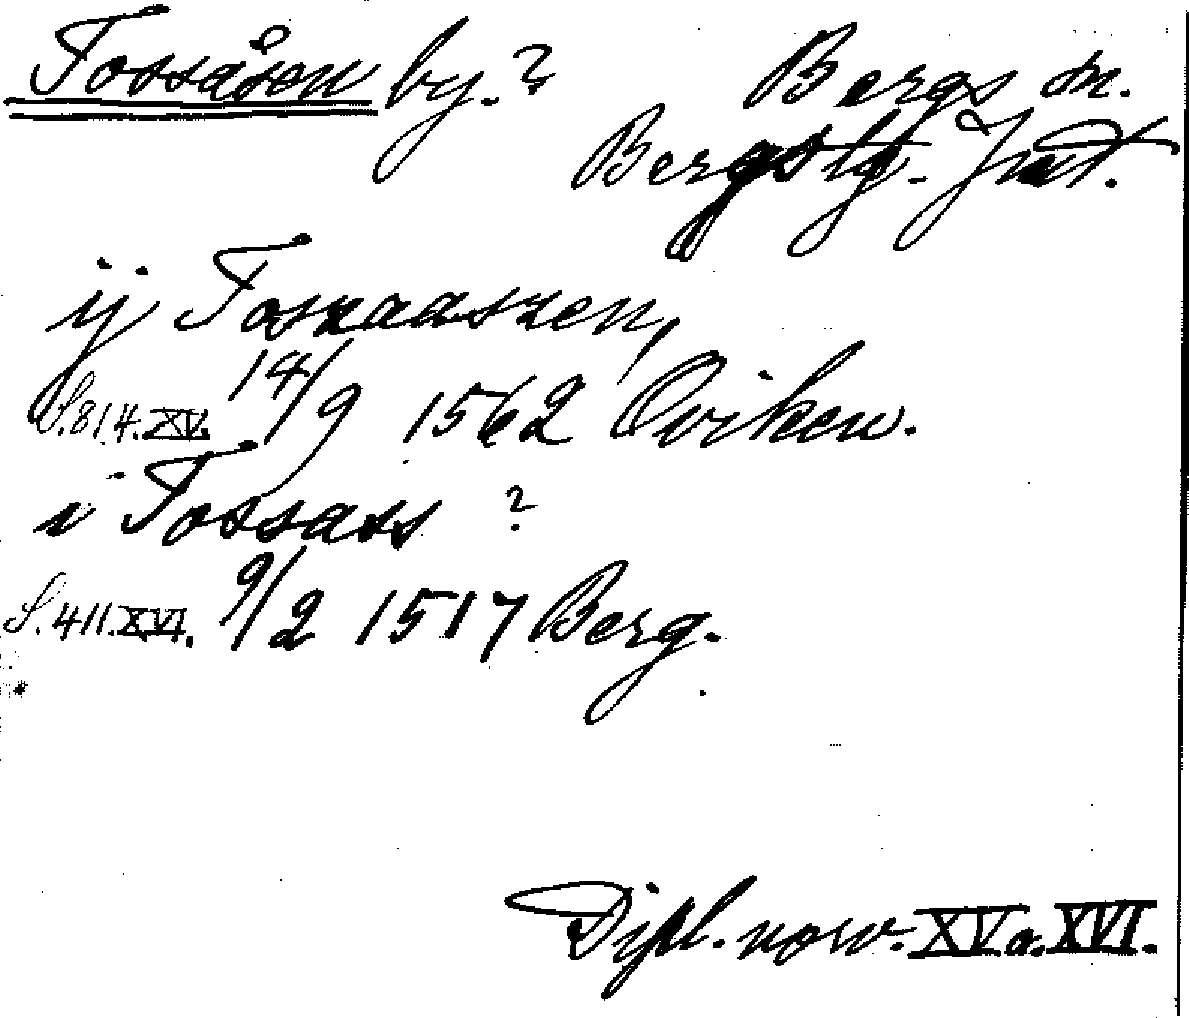 Fossåsen by.? Bergs sn.
Bergs tg. Jmt.
ij Foszaaszen,
S.814.XV. 14/9 1562 Oviken.
i Fossass ?
S.411.XVI. 9/2 1517 Berg.
Dipl. norv. XV o. XVI.